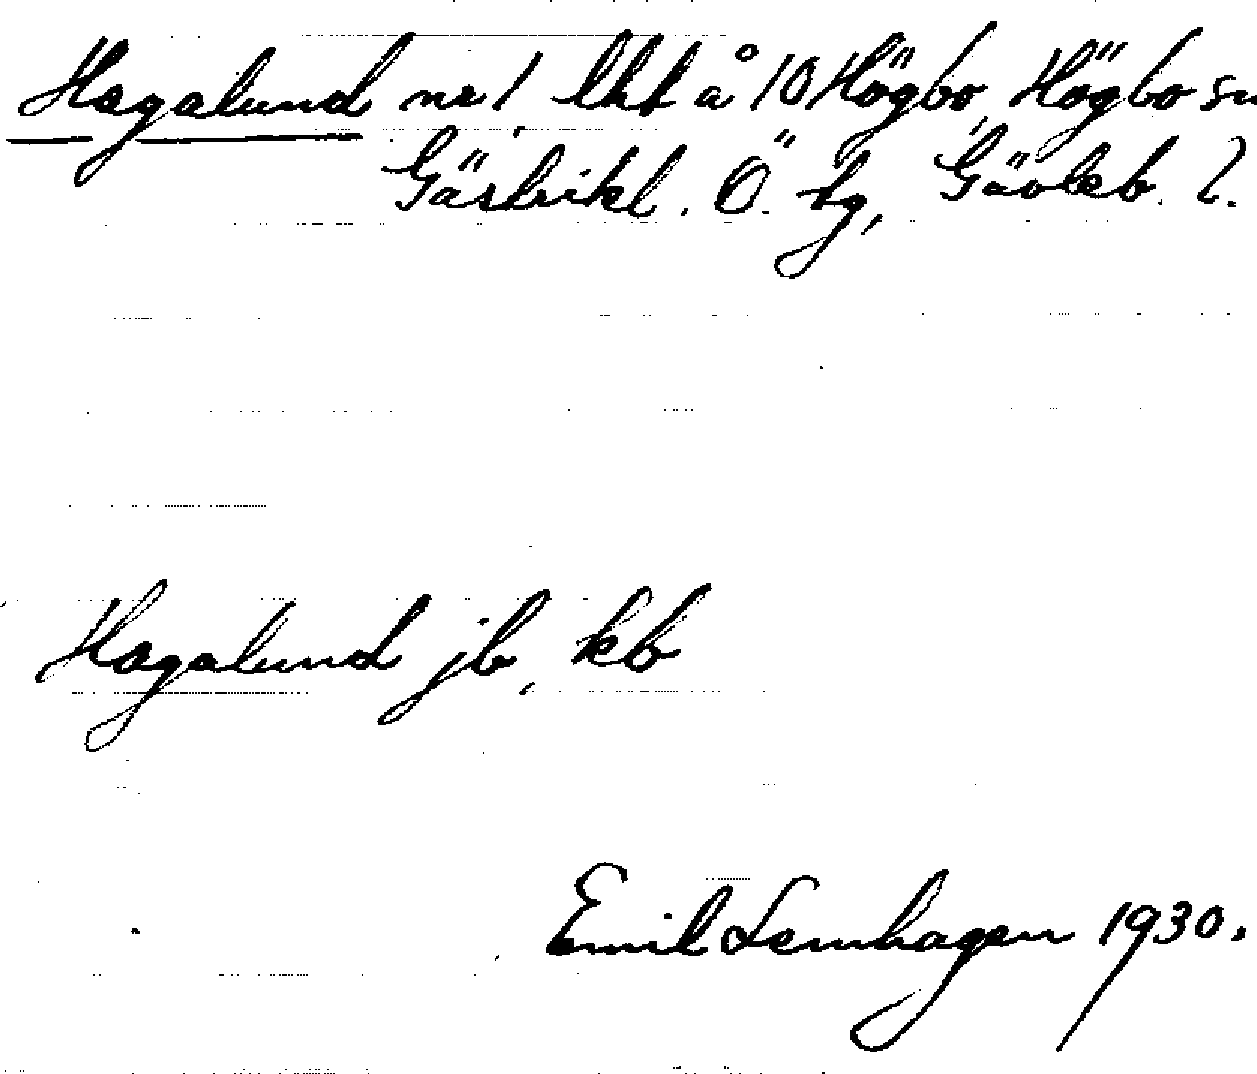 Hagalund nr 1, lht å 10 Högbo, Högbo sn
Gästrikl. Ö. tg, Gävleb. l.
Hagalund jb, kb
Emil Lennhagen 1930.